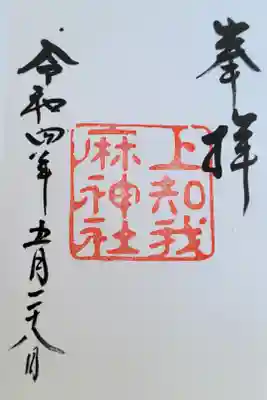 奉拝
上知我
麻神社
令和四年五月二十八日